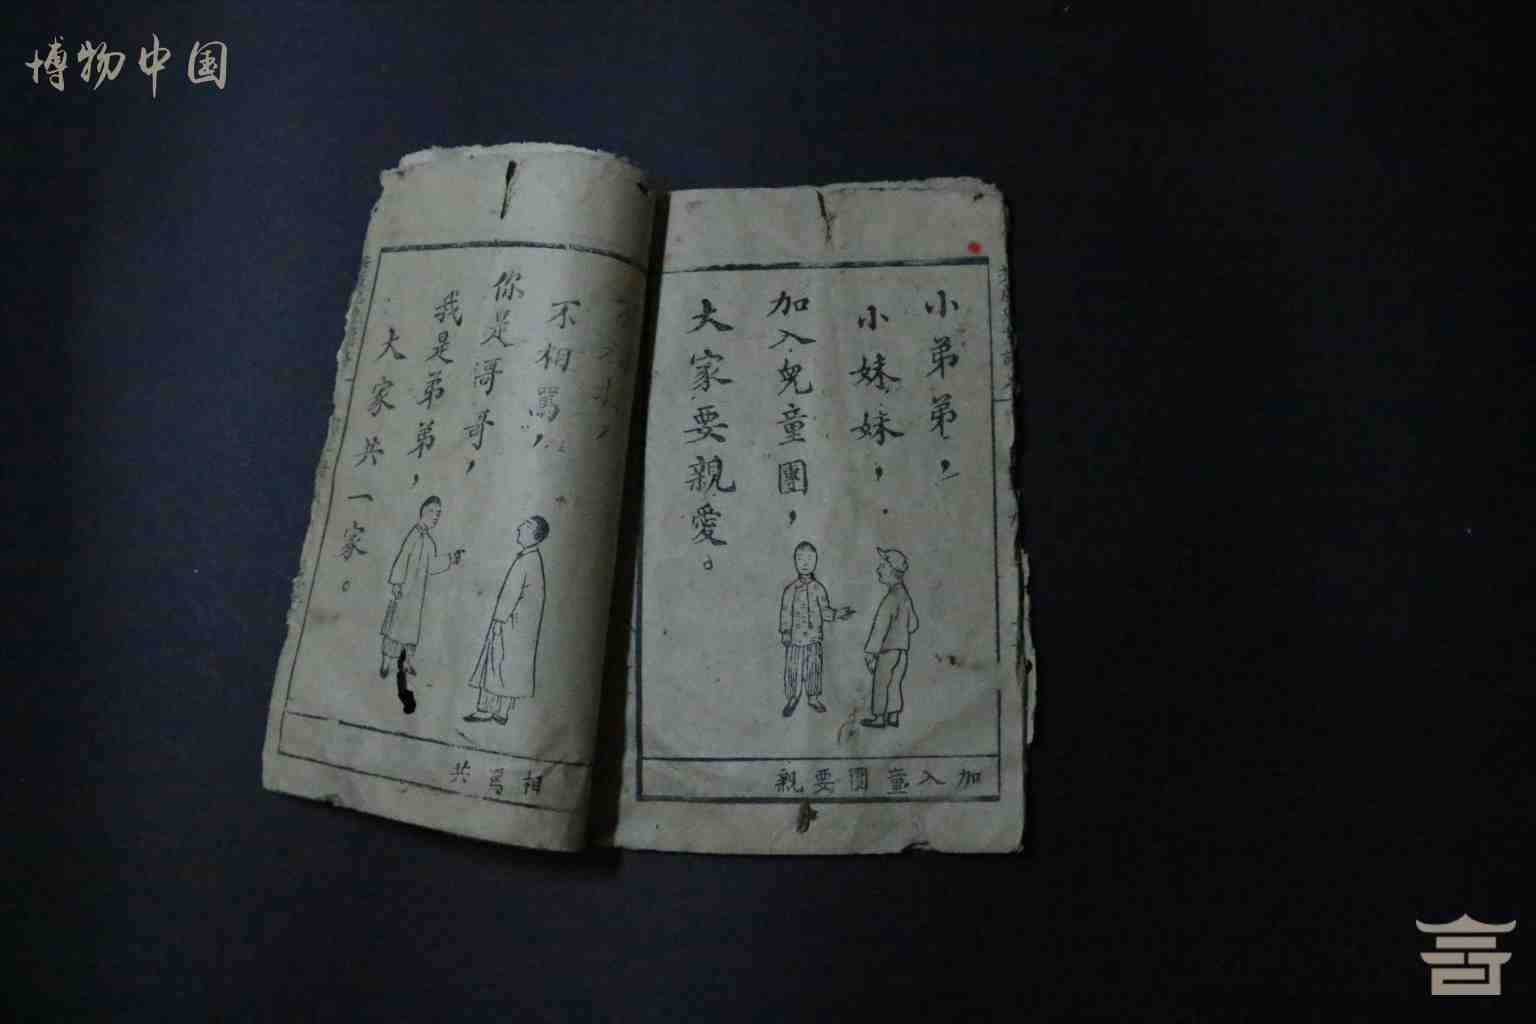 博物中国
小弟弟，
小妹妹，
加入兒童團，
大家要親愛。
加入童團要親
不相罵，
你是哥哥，
我是弟弟，
大家共一家。
相罵共